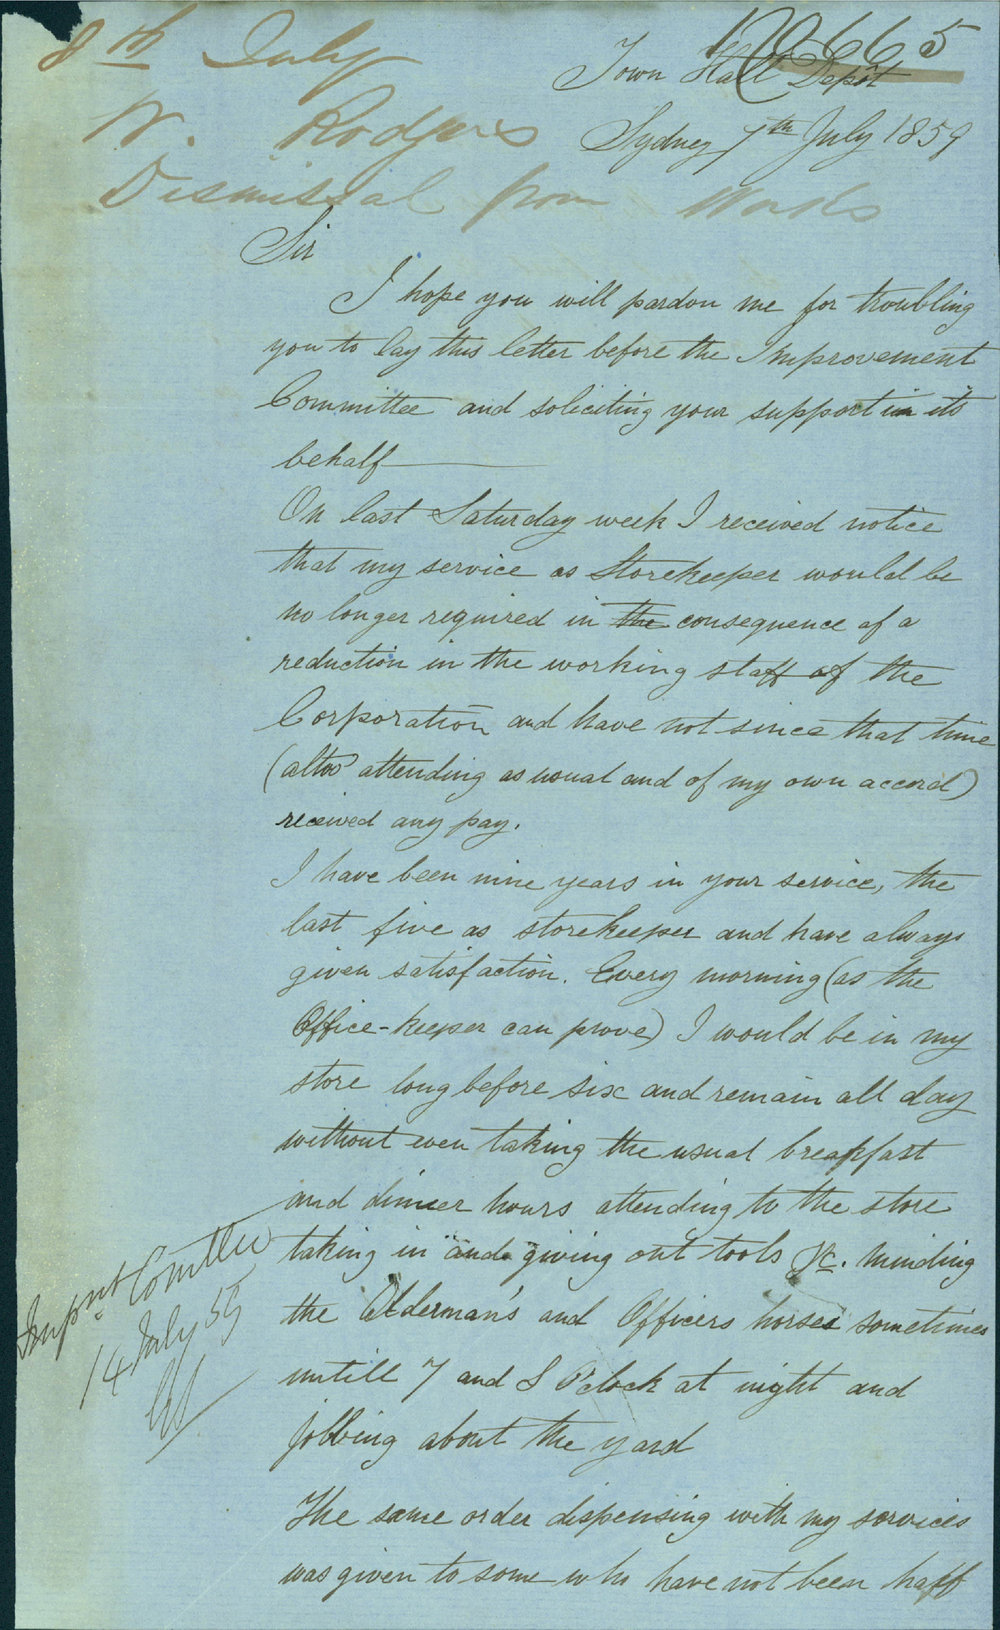 8th July
W. Rodgers
Dismissal from Works
Town Hall Depôt
Sydney 7th July 1859
Sir
I hope you will pardon me for troubling
you to lay this letter before the Improvement
Committee and soliciting your support in its
behalf
On last Saturday week I received notice
that my service as Storekeeper would be
no longer required in the consequence of a
reduction in the working staff of the
Corporation and have not since that time
(altho' attending as usual and of my own accord)
received any pay.
I have been nine years in your service, the
last five as storekeeper and have always
given satisfaction. Every morning (as the
Office-keeper can prove) I would be in my
store long before six and remain all day
without even taking the usual breakfast
and dinner hours attending to the store
taking in and giving out tools &c. minding
the Alderman's and Officers horses sometimes
untill 7 and 8 O'clock at night and
jobbing about the yard
The same order dispensing with my services
was given to some who have not been haff
Impvt Comttee
14 July 59